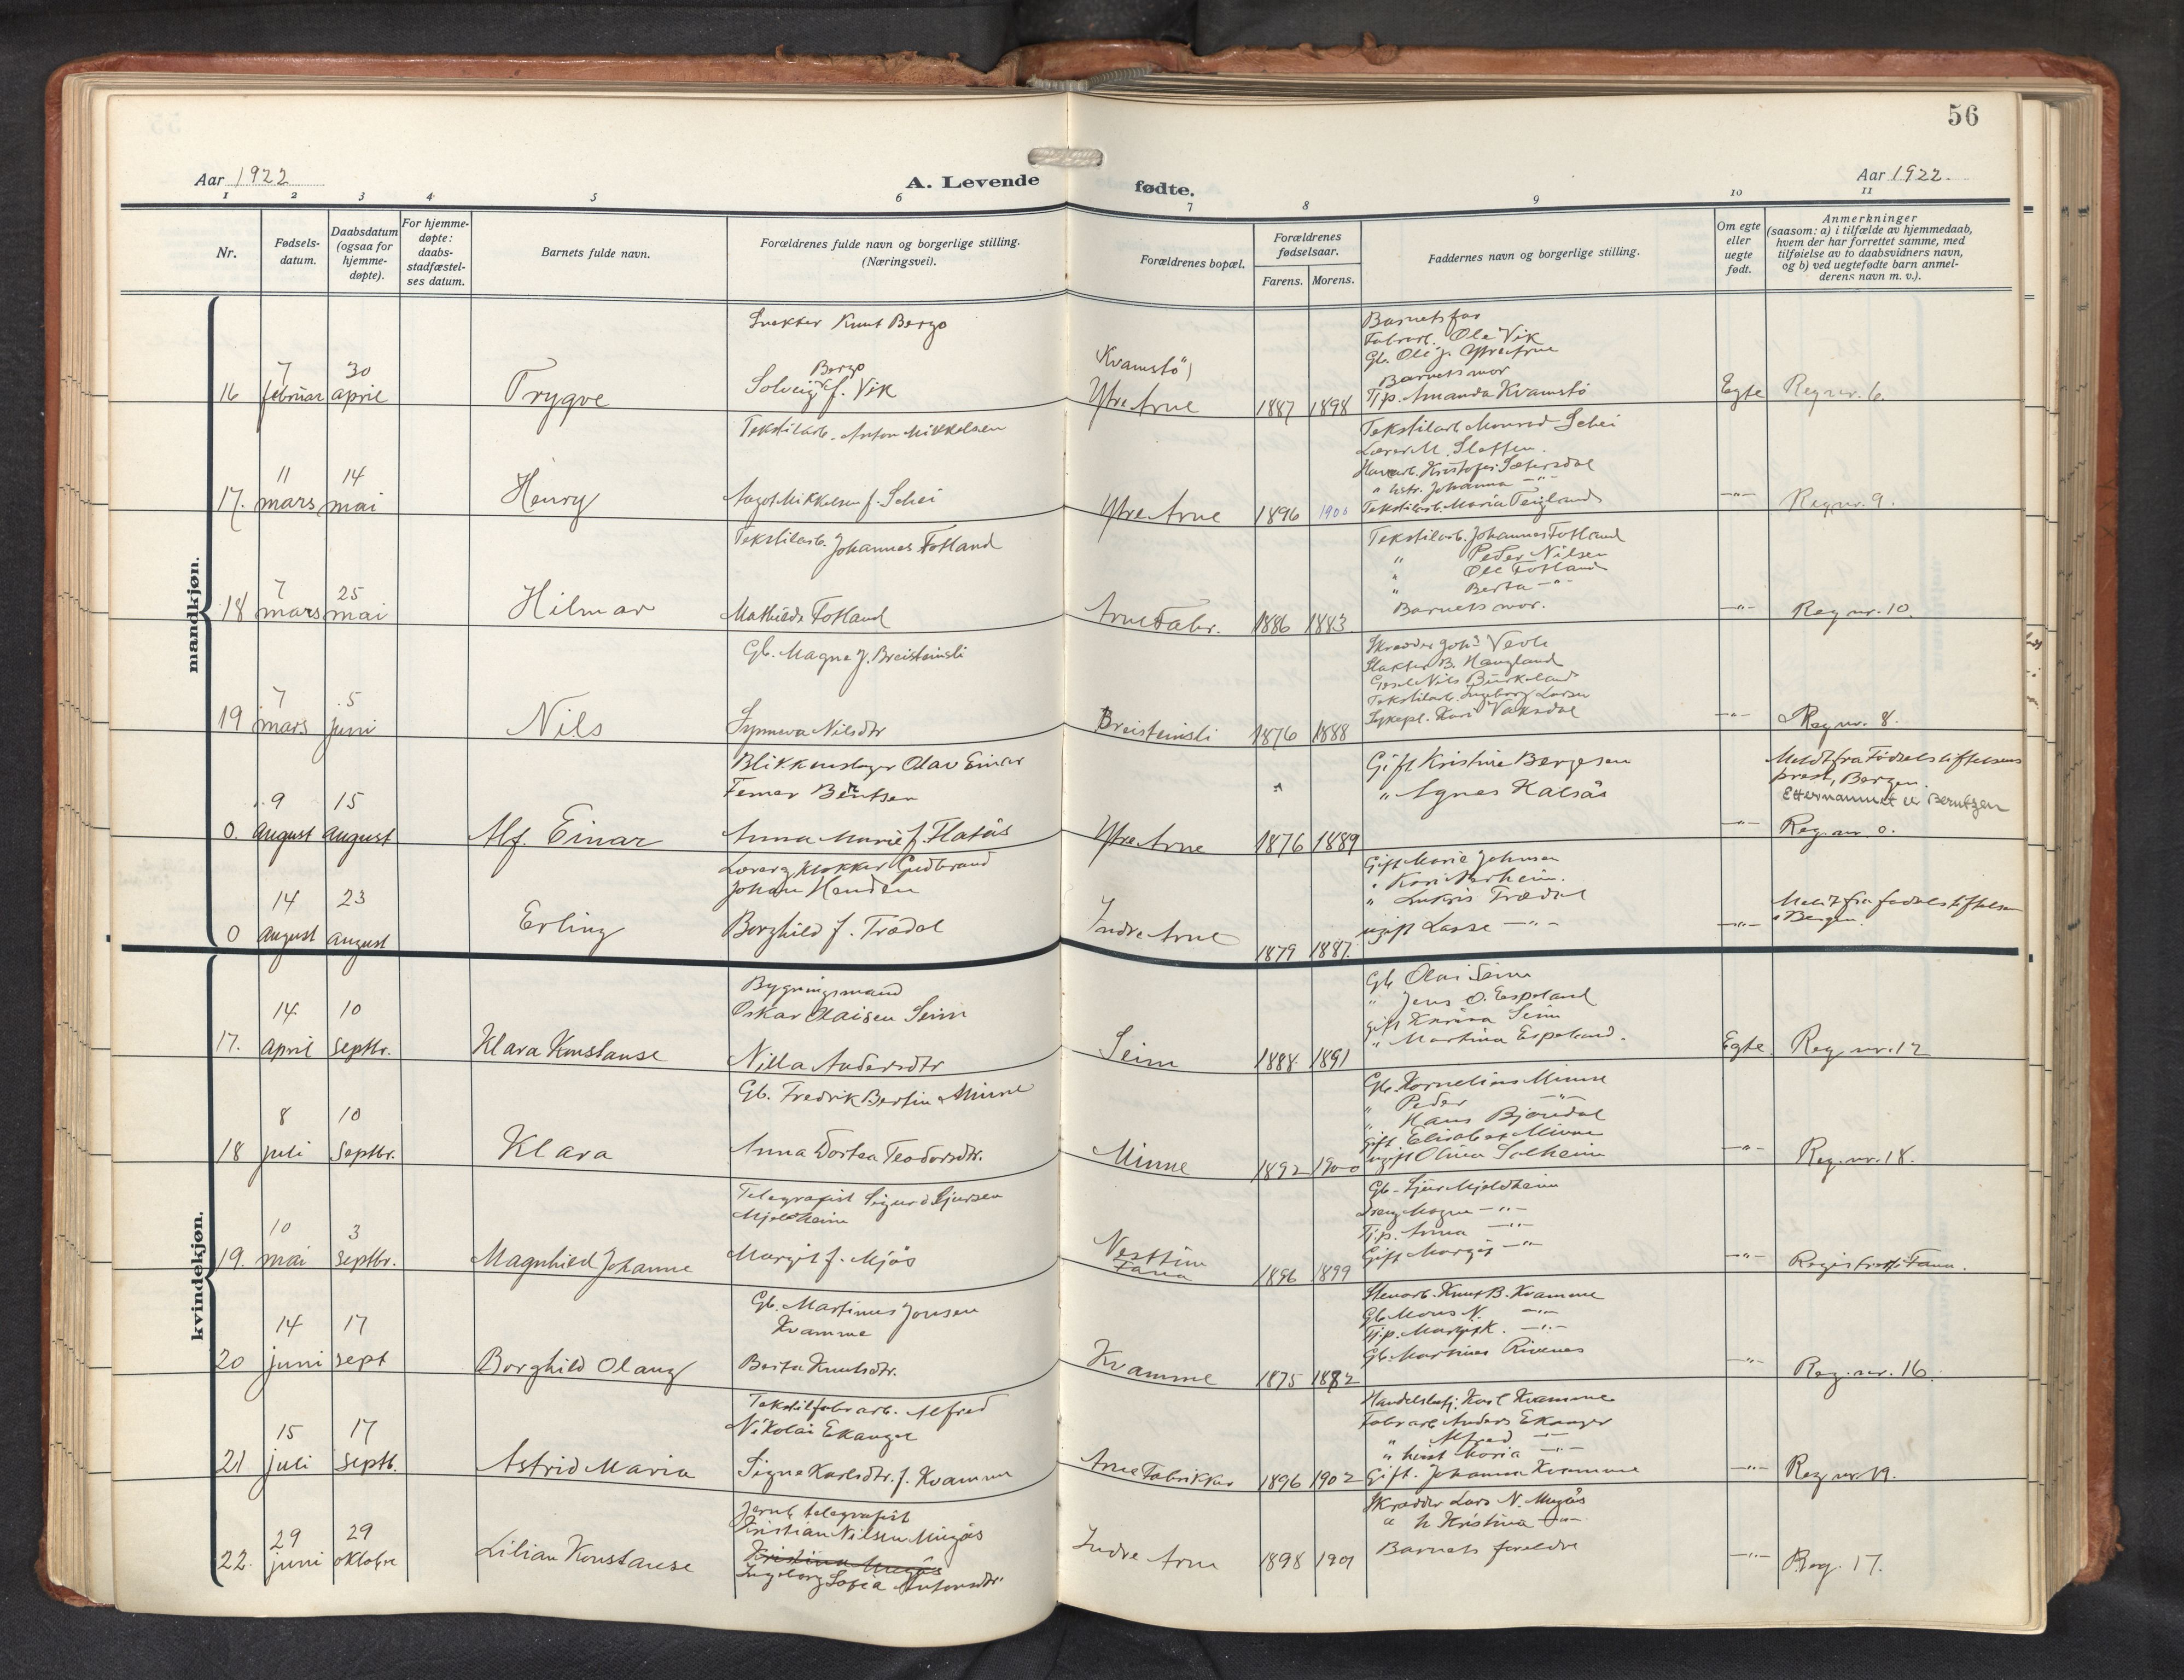 56
Aar 1922
A. Levende fødte.
Aar 1922.
1 2 3 4 5 6 7 8 9 10 11
Nr.
Fødsels-
datum.
Daabsdatum
(ogsaa for
hjemme-
døpte).
For hjemme-
døpte:
daabs-
stadfæstel-
ses datum.
Barnets fulde navn.
Forældrenes fulde navn og borgerlige stilling.
(Næringsvei).
Forældrenes bopæl.
Forældrenes
fødselsaar.
Farens. Morens.
Faddernes navn og borgerlige stilling.
Om egte
eller
uegte
født.
Anmerkninger
(saasom: a) i tilfælde av hjemmedaab,
hvem der har forrettet samme, med
tilføielse av to daabsvidners navn,
og b) ved uegtefødte barn anmel-
derens navn m. v.).
mandkjøn.
16
7
februar
30
april
Trygve
Knut Bergo
Bergo
Solveig f. Vik
Kvamstø)
Ytre Arne
1887 1898
Barnets far
Fabrarb. Ole Vik
Gb. Ole J. Ytre Arne
Barnets mor
Tjp. Amanda Kvamstø
Egte
Reg nr. 6.
17.
11
mars
14
mai
Henry
Tekstilarb. Anton Mikkelsen
Aagot Mikkelsen f. Schei
Ytre Arne
1896 1900
Tekstilarb. Monrad Schei
Lærer M. Sletten.
Kristofer Sætersdal
" hstr. Johanna -"-
Tekstilarb. Maria Teigland
-"-
Reg nr. 9.
18
7
mars
25
mai
Hilmar
Tekstilarb. Johannes Fotland
Mathilde Fotland
Arne Fabr.
1886 1883.
Tekstilarb. Johannes Fotland
" Peder Nilsen
" Ole Fotland
Berta -"-
Barnets mor.
-"-
Reg nr. 10.
19
7
mars
5
juni
Nils
Gb. Magne J. Breisteinsli
Synneva Nilsdtr
Breisteinsli
1876 1888
Skrædder Johs Vevle
Slakter B. Haugland
Nils Birkeland
Tekstilarb. Ingeborg Larsen
Sykepl. Kari Vaksdal
-"-
Reg nr. 8.
0.
9
august
15
august
Alf Einar
Blikkenslager Olav Einar
Ferner Berntsen
Anna Marie f. Flatås
Ytre Arne
1876 1889
Gift Kristine Bergesen
" Agnes Halsås
-"-
Meldt fra Fødselsstiftelsens
prest, Bergen.
Etternamnet er Berntzen
Reg. nr. 0.
0
14
august
23
august
Erling
Lærer og klokker Gudbrand
Johan Henden
Borghild f. Trædal
Indre Arne
1879 1887.
Gift Marie Johnsen
" Kari Aarheim.
" Lukris Trædal
ugift Lasse -"-
-"-
Meldt fra fødselsstiftelsen
i Bergen.
kvindekjøn.
17.
14
april
10
septbr.
Klara Konstanse
Bygningsmand
Oskar Olaisen Seim
Nilla Andersdtr
Seim
1888 1891
Gb Olai Seim
" Jens O. Espeland
gift Karina Seim
" Martina Espeland.
Egte
Reg. nr. 12
18
8
juli
10
Septbr.
Klara
Gb. Fredrik Bertin Minne
Anna Dortea Teodorsdtr.
Minne
1892 1900
Gb. Kornelius Minne
" Peder -"-
" Hans Bjørndal
gift Elisabet Minne
ugift Olina Solheim
-"-
Reg. nr. 18.
19.
10
mai
3
septbr.
Magnhild Johanne
Telegrafist Sigurd Sjursen
Mjeldheim
Margit f. Mjøs
Nesttun
Fana
1896 1899
Gb. Sjur Mjeldheim
Dreng Mogne -"-
Tj.p. Anna -"-
Gift Margit -"-
-"-
Registrert i Fana.
20
14
juni
17
sept
Borghild Olaug
Gb. Martinus Jonsen
Kvamme
Berta Knutsdtr.
Kvamme
1875 1882
Stenarb. Knut B. Kvamme
Gb. Mons N. -"-
Tj.p. Margit K. -"-
Gb. Martines Rivenes
-"-
Reg. nr. 16.
21
15
juli
17
Septb.
Astrid Maria
Tekstilfabrarb. Alfred
Nikolai Ekanger
Signe Karlsdtr. f. Kvamme
Arne Fabrikker
1896 1902
Handelsbetj. Karl Kvamme
Fabrarb Anders Ekanger
" Alfred -"-
Maria -"-
Gift. Johanna Kvamme
-"-
Reg nr 19.
22.
29
juni
29
oktobre
Lilian Konstanse
Jernb. telegrafist
Kristian Nilsen Mugås
Kristina Mugås
Ingeborg Sofia Antonsdtr
Indre Arne
1898 1901
Skrædder Lars N. Mugås
" h Kristina -"-
Barnets foreldre
-"-
Reg. 17.